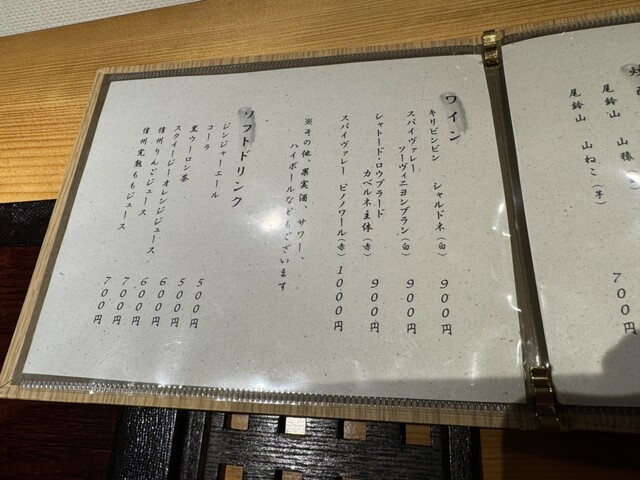 焼酎
尾鈴山 山猿
尾鈴山 山ねこ（芋） 700円
ワイン
キリビンビン シャルドネ（白） 900円
スパイヴァレー
ソーヴィニヨンブラン（白） 900円
シャトード・ロウブラード
カベルネ主体（赤） 900円
スパイヴァレー ピノノワール（赤） 1000円
※その他、果実酒、サワー、
ハイボールなどもございます
ソフトドリンク
ジンジャーエール 500円
コーラ 500円
黒ウーロン茶 600円
スクイージーオレンジジュース 600円
信州りんごジュース 700円
信州完熟ももジュース 700円